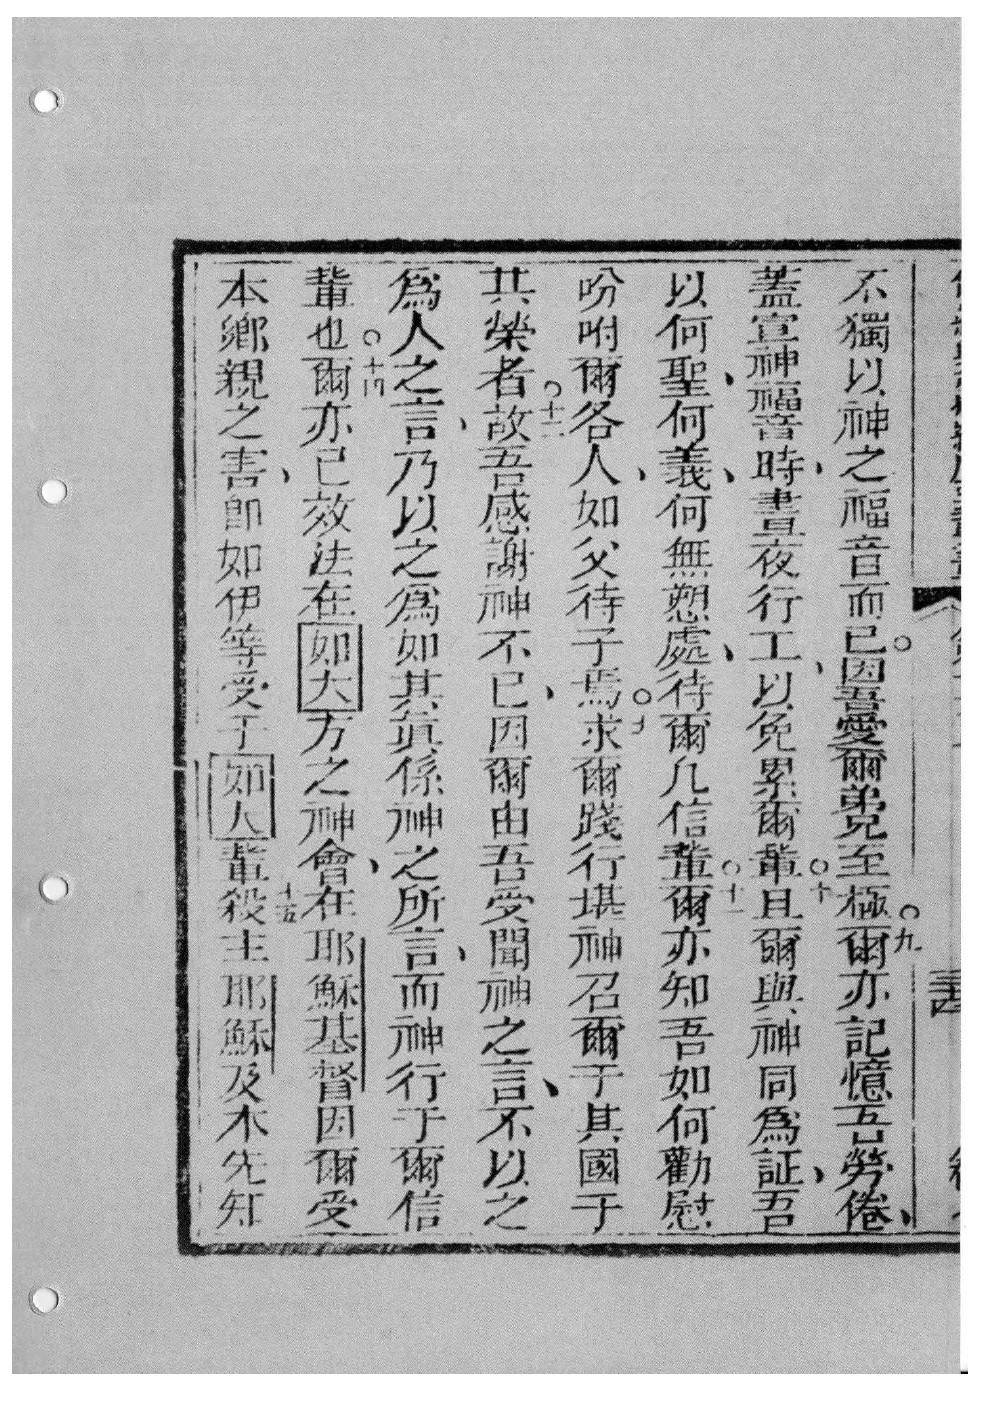 不獨以神之福音而已。因吾愛爾弟兄至極。九爾亦記憶吾勞倦、
蓋宣神福音時、晝夜行工、以免累爾輩。十且爾與神同為証、吾
以何聖、何義、何無愬處、待爾凡信輩。十一爾亦知吾如何勸慰
吩咐爾各人、如父待子焉。求爾踐行堪神召爾于其國于
其榮者。十二故吾感謝神不已、因爾由吾受聞神之言、不以之
為人之言、乃以之為如其真係神之所言、而神行于爾信
輩也。十四爾亦已效法在如大方之神會、在耶穌基督因爾受
本鄉親之害、即如伊等受于如人輩。十五殺主耶穌及本先知